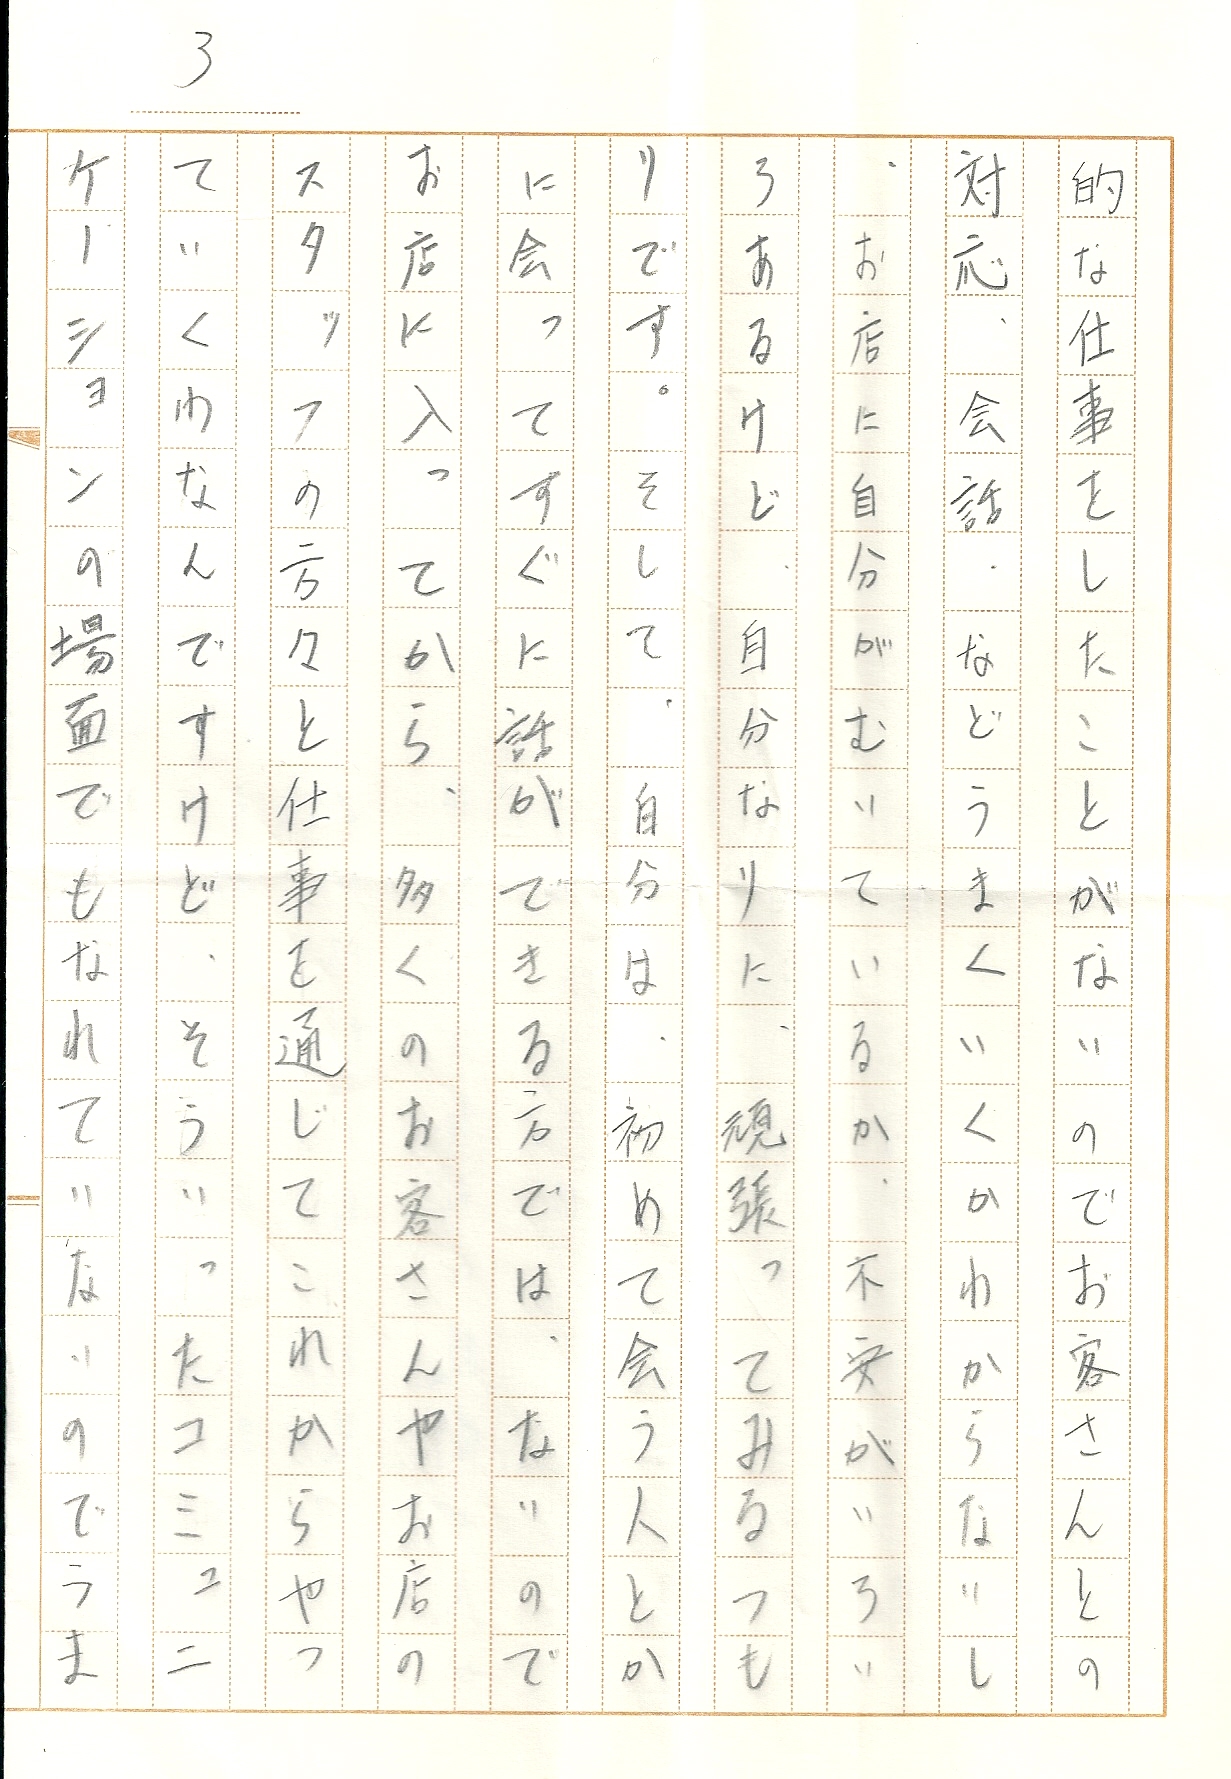 3
的な仕事をしたことがないのでお客さんとの
対応、会話、などうまくいくかわからないし
、お店に自分がむいているか、不安がいろい
ろあるけど、自分なりに、頑張ってみるつも
りです。そして、自分は、初めて会う人とか
に会ってすぐに話ができる方では、ないので
お店に入ってから、多くのお客さんやお店の
スタッフの方々と仕事を通じてこれからやっ
ていくわなんですけど、そういったコミュニ
ケーションの場面でもなれていないのでうま